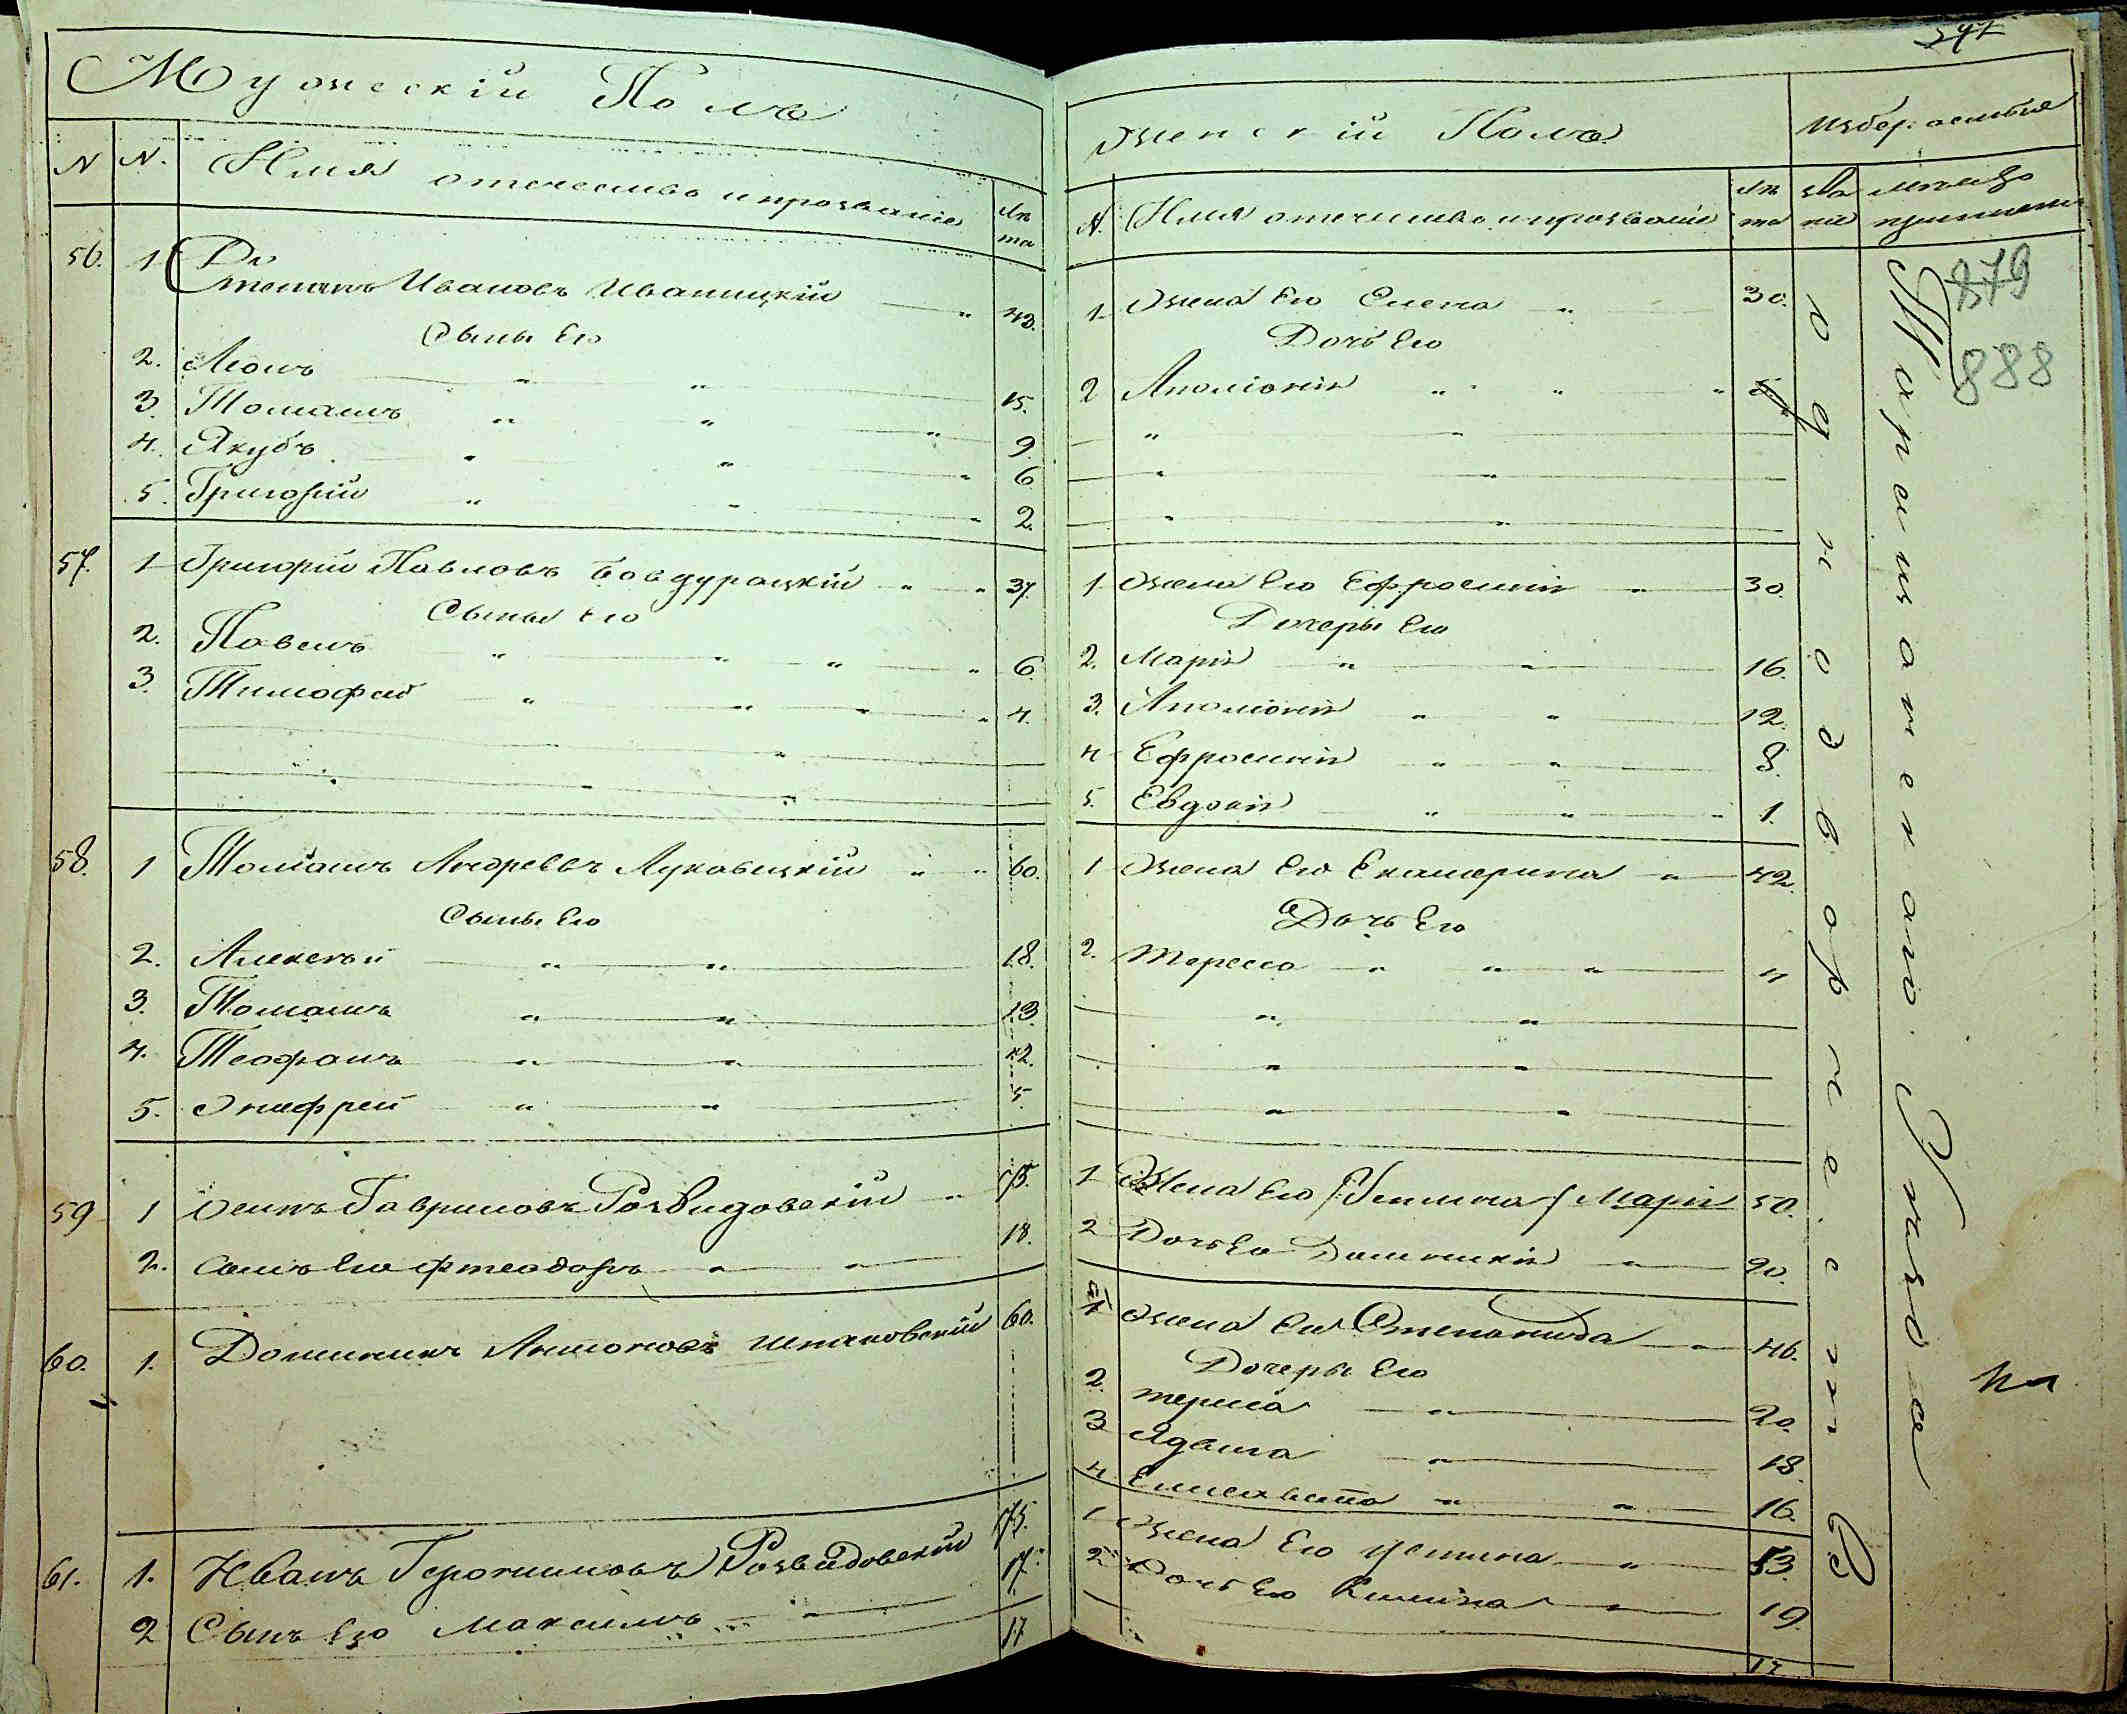 Мужескій Полъ
N N. Имя отечество и прозваніе Лѣта
56. 1 Степанъ Ивановъ Иваницкій 43.
Сыны Его
2. Леонъ 15.
3. Томашъ 9
4. Якубъ 6
5. Григорій 2.
57. 1 Григорій Павловъ 37.
Сыны Его
2. Павелъ 6.
3. Тимофей 4.
58. 1 Томашъ Андреевъ Луковицкій 60.
Сыны Его
2. Алексѣй 18.
3. Томашъ 13.
4. Теофанъ 12.
5. Онифрей 5.
59 1 Осипъ Гавриловъ Розвидовскій 75.
2. Сынъ Его Фтеодоръ 18.
60. 1. Доминикъ Антоновъ Шпаковскій 60.
61. 1. Иванъ Геронимовъ Розвадовскій 75.
2 Сынъ Его Максимъ 17.
17
Женскій Полъ
N. Имя отечество и прозваніе Лѣта
1 Жена Его Елена 30.
Дочь Его
2 Аполіонія
1 Жена Его Ефросинія 30.
Дочеры Его
2. Марія 16.
3. Аполіонія 12.
4 Ефросинія 8.
5. Евдокія 1.
1 Жена Его Екатерина 42.
Дочь Его
2. Тересса 4
1 Жена Его Марія 50.
2 Дочь Его Доминикія 20.
1 Жена Его Степанида 46.
Дочеры Его
2. Териса 20.
3 Ядвига 18.
4 Елисавета 16.
1 Жена Его Устина 53.
2 Дочь Его 19.
17
879
888
Однодворческое
Таращанского Уѣзда